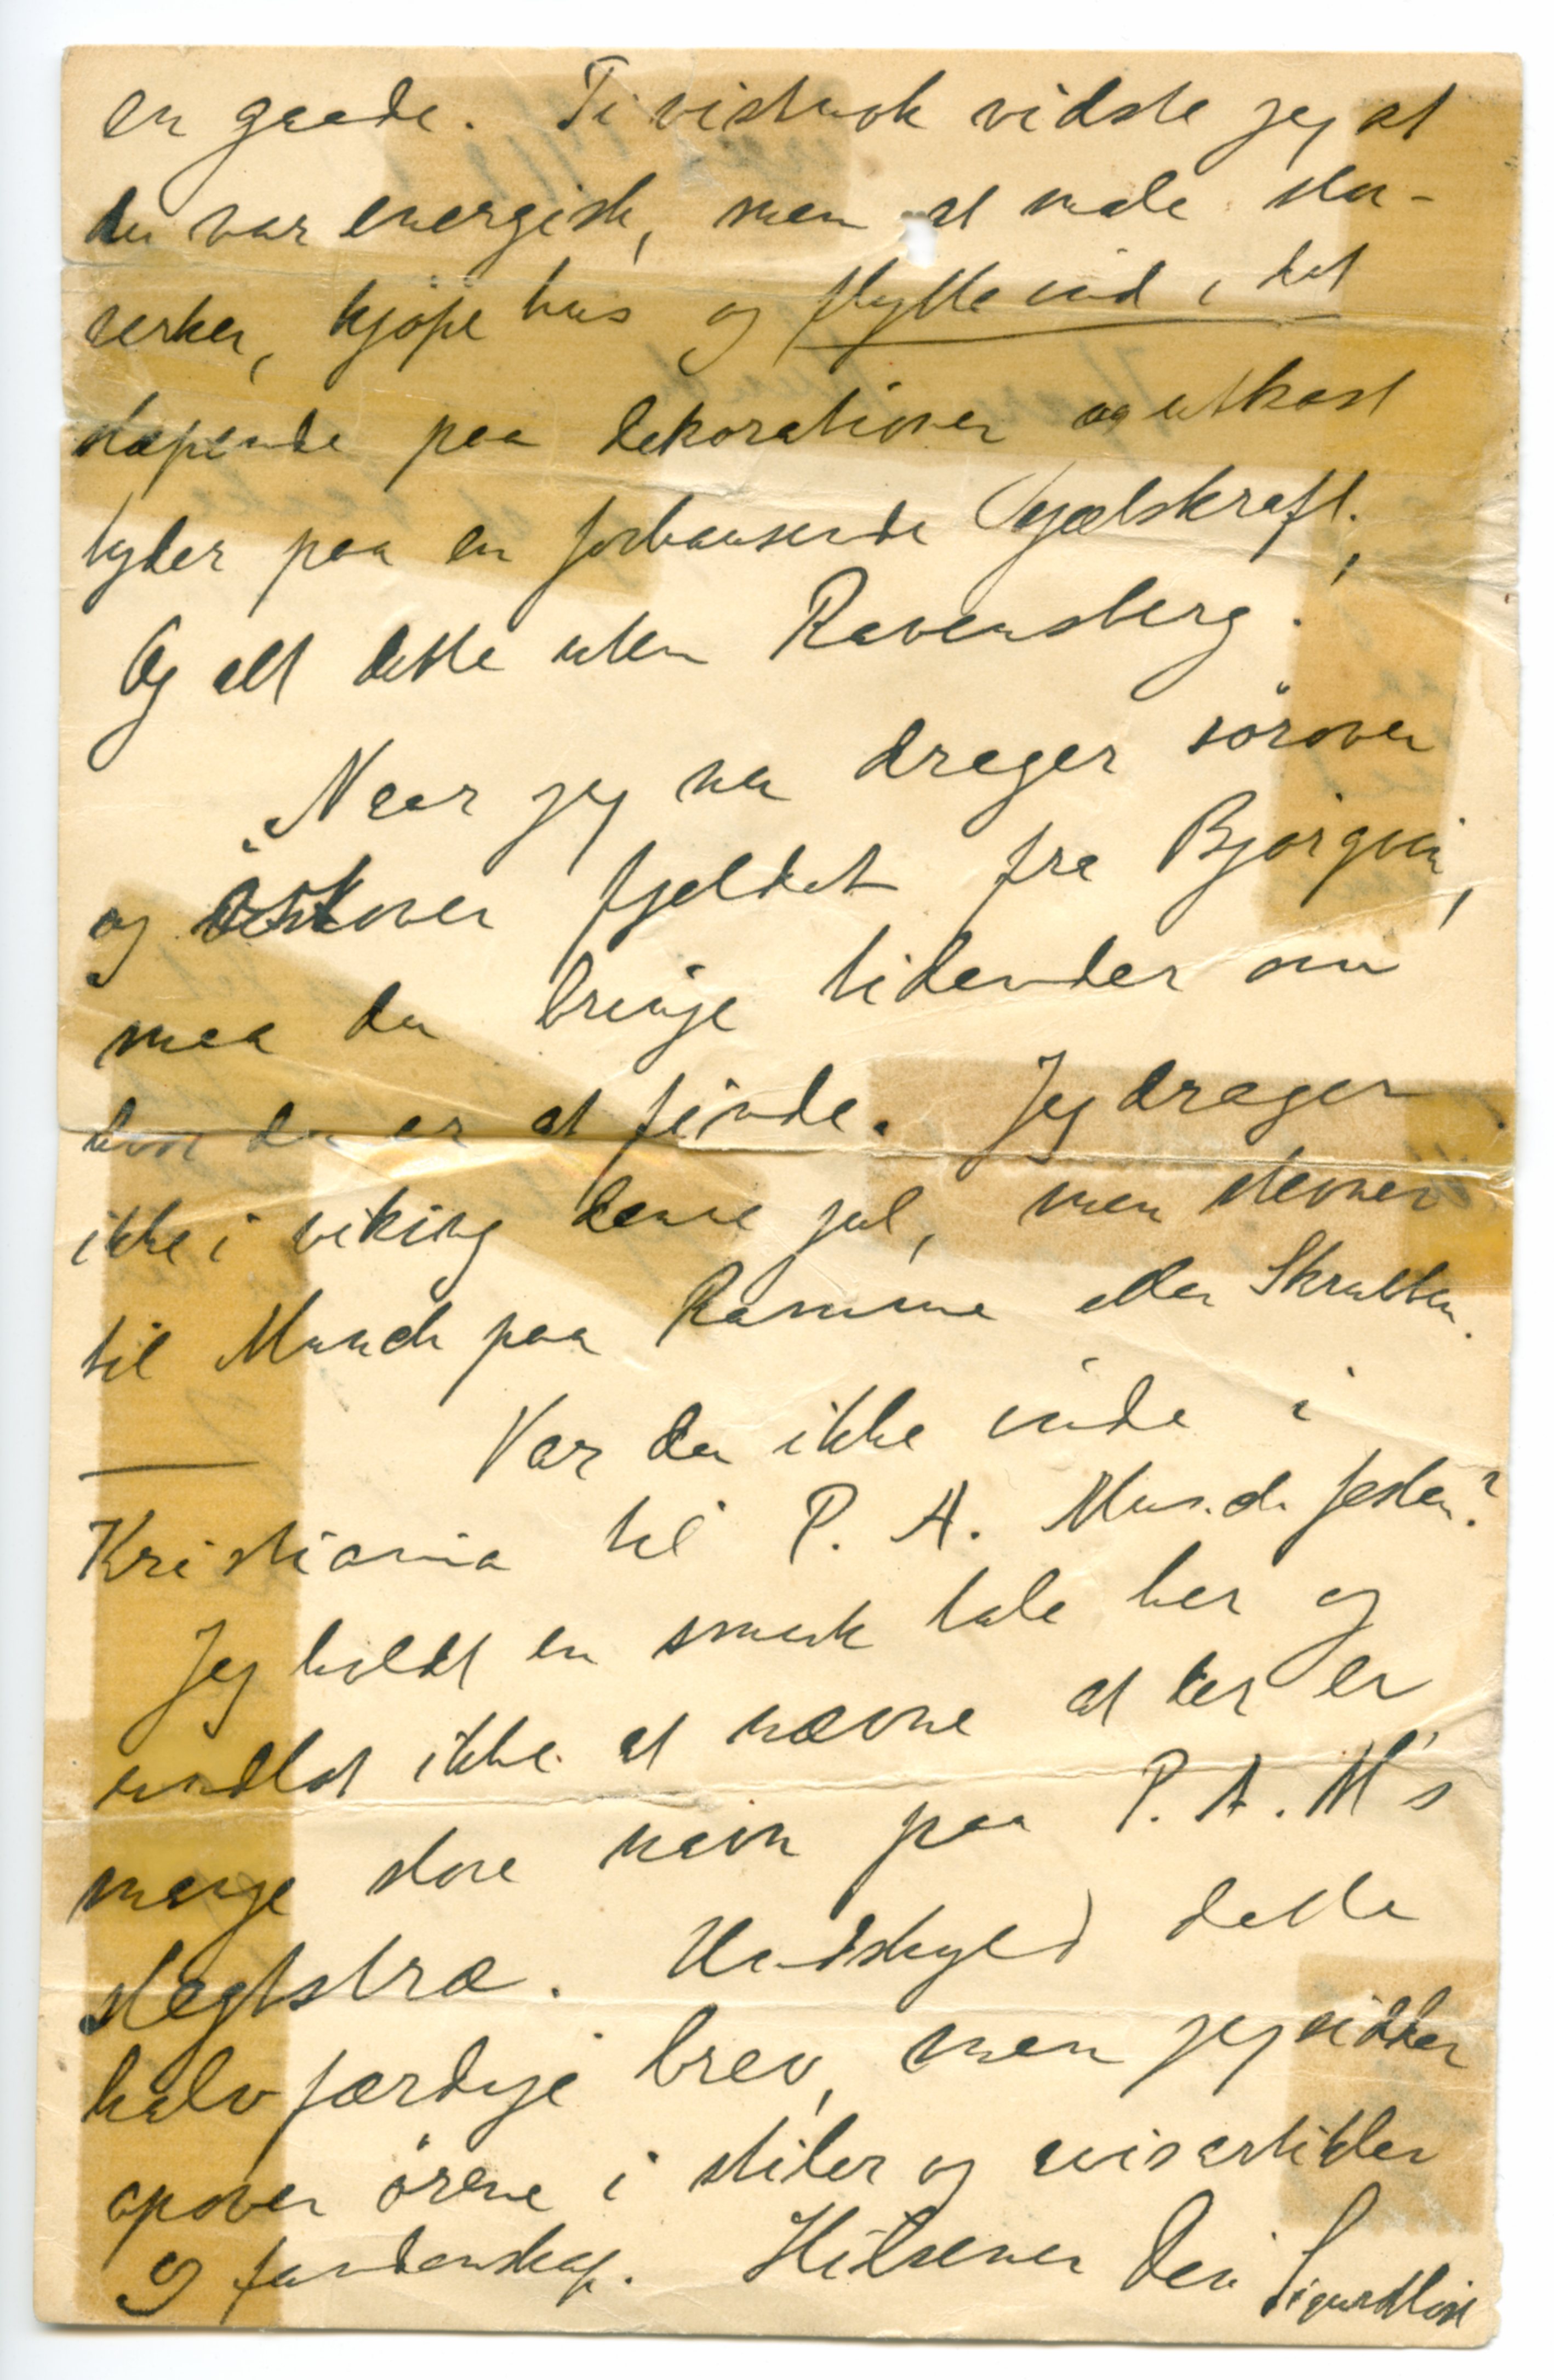 en gaade. Ti vistnok vidste jeg at
du var energisk, men at male stor-
verker, kjøpe hus og flytte ind i det
støpende paa dekorationer og utkast
tyder paa en forbausende Sjælskraft.
Og alt dette uten Ravensberg!
Naar jeg nu drager sørover
og østover fjeldet fra Bjørgvin,
maa du bringe tidender om
hvor du er at finde. Jeg drager
ikke i viking denne jul, men stevner
til Munch paa Ramme eller Skrubben.
Var du ikke inde i
Kristiania til P. A. Munch festen?
Jeg holdt en smuk tale her og
undlot ikke at nævne at der er
mange store navn paa P. A. M's
slegtstræ. Undskyld dette
halvfærdige brev, men jeg sidder
opover ørene i stiler og avisartikler
og fandenskap. Hilsener Din Sigurd Høst